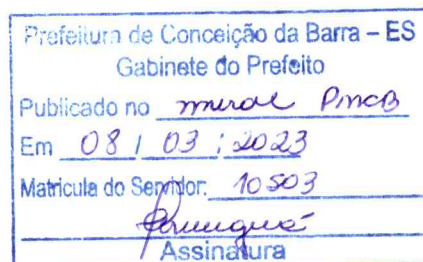 Prefeitura de Conceição da Barra – ES
Gabinete do Prefeito
Publicado no mural PMCB
Em 08 / 03 / 2023
Matricula do Servidor: 10503
Assinatura